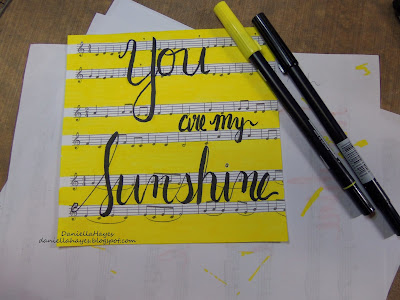 You
are my
Sunshine
DaniellaHayes
daniellahayes.blogspot.com